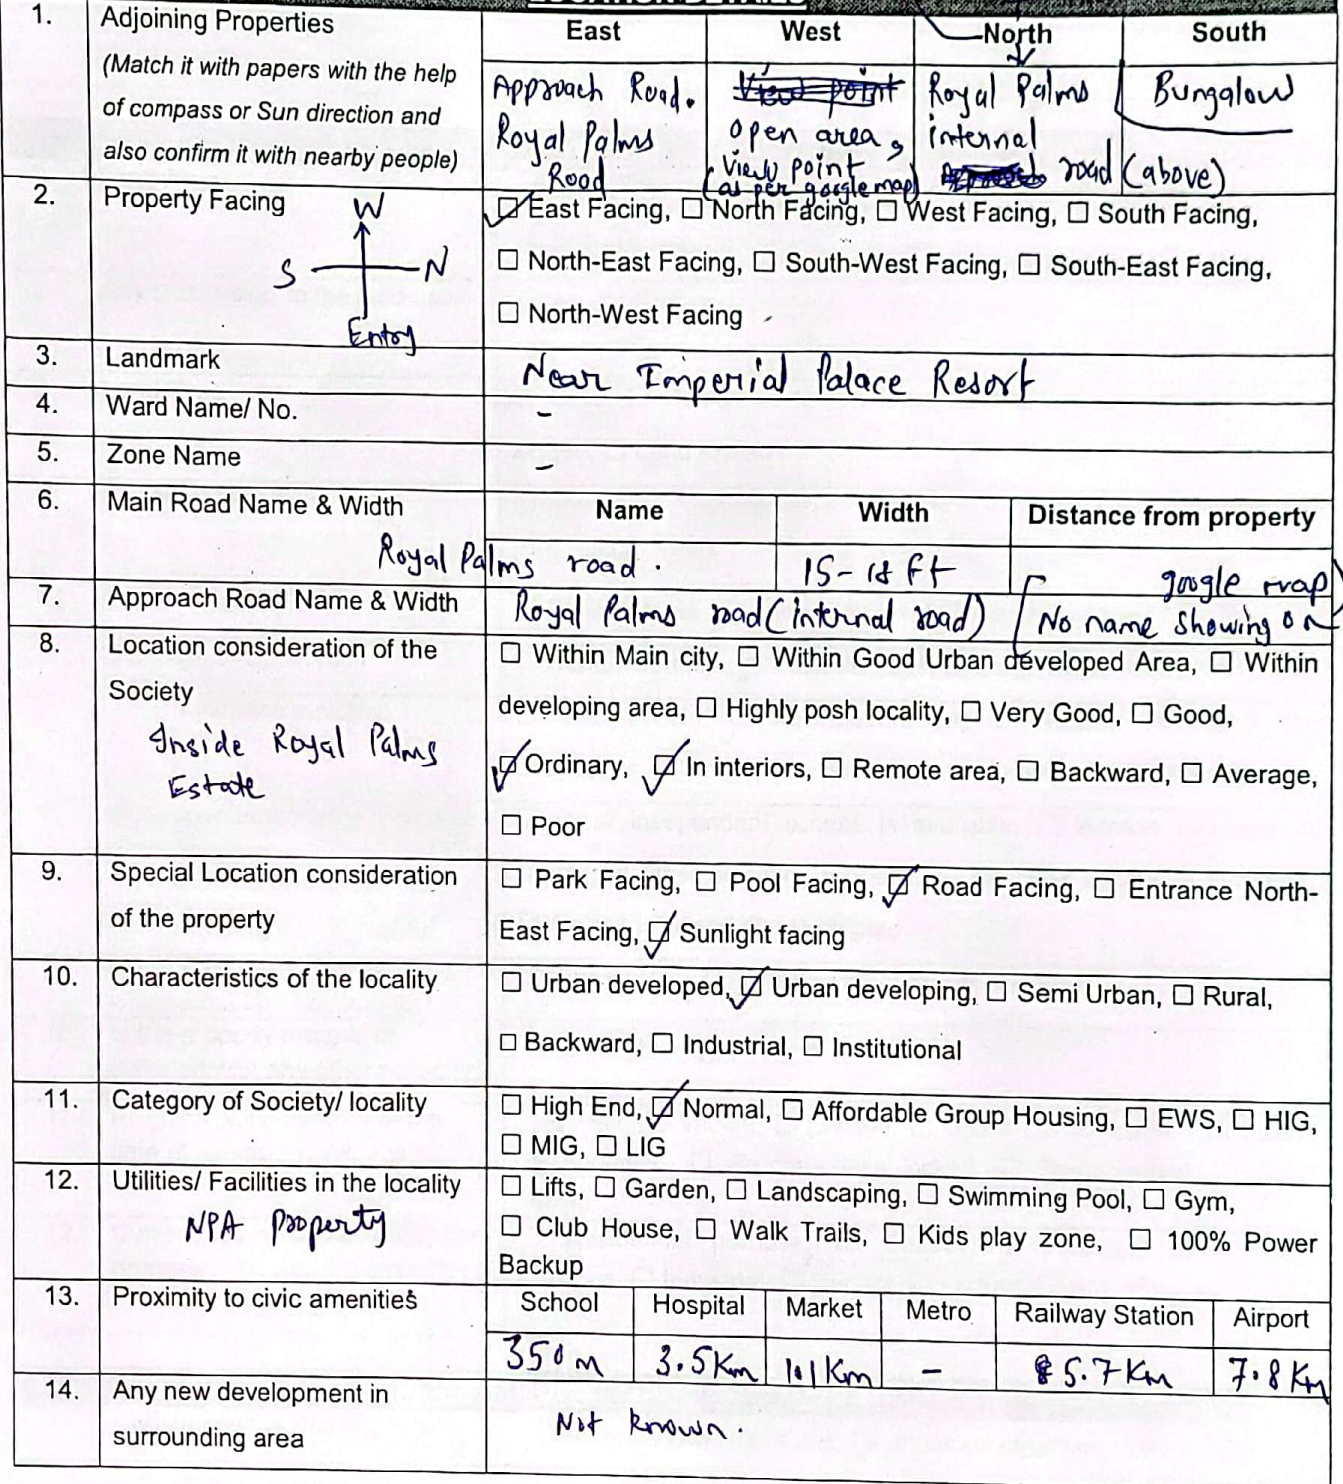 LOCATION DETAILS
1. Adjoining Properties
(Match it with papers with the help
of compass or Sun direction and
also confirm it with nearby people)
East West North South
Approach Road.
Royal Palms
Road
View point
open area,
View point
(as per google map)
Royal Palms
internal
road
Bungalow
(above)
2. Property Facing
W
S N
Entry
☑ East Facing, ☐ North Facing, ☐ West Facing, ☐ South Facing,
☐ North-East Facing, ☐ South-West Facing, ☐ South-East Facing,
☐ North-West Facing
3. Landmark Near Imperial Palace Resort
4. Ward Name/ No. -
5. Zone Name -
6. Main Road Name & Width Name Width Distance from property
Royal Palms road. 15-18 ft
7. Approach Road Name & Width Royal Palms road (internal road)
google map)
[No name showing on
8. Location consideration of the
Society
Inside Royal Palms
Estate
☐ Within Main city, ☐ Within Good Urban developed Area, ☐ Within
developing area, ☐ Highly posh locality, ☐ Very Good, ☐ Good,
☑ Ordinary, ☑ In interiors, ☐ Remote area, ☐ Backward, ☐ Average,
☐ Poor
9. Special Location consideration
of the property
☐ Park Facing, ☐ Pool Facing, ☑ Road Facing, ☐ Entrance North-
East Facing, ☑ Sunlight facing
10. Characteristics of the locality
☐ Urban developed, ☑ Urban developing, ☐ Semi Urban, ☐ Rural,
☐ Backward, ☐ Industrial, ☐ Institutional
11. Category of Society/ locality
☐ High End, ☑ Normal, ☐ Affordable Group Housing, ☐ EWS, ☐ HIG,
☐ MIG, ☐ LIG
12. Utilities/ Facilities in the locality
NPA Property
☐ Lifts, ☐ Garden, ☐ Landscaping, ☐ Swimming Pool, ☐ Gym,
☐ Club House, ☐ Walk Trails, ☐ Kids play zone, ☐ 100% Power
Backup
13. Proximity to civic amenities
School Hospital Market Metro Railway Station Airport
350m 3.5Km 1.1Km - 5.7Km 7.8Km
14. Any new development in
surrounding area
Not known.